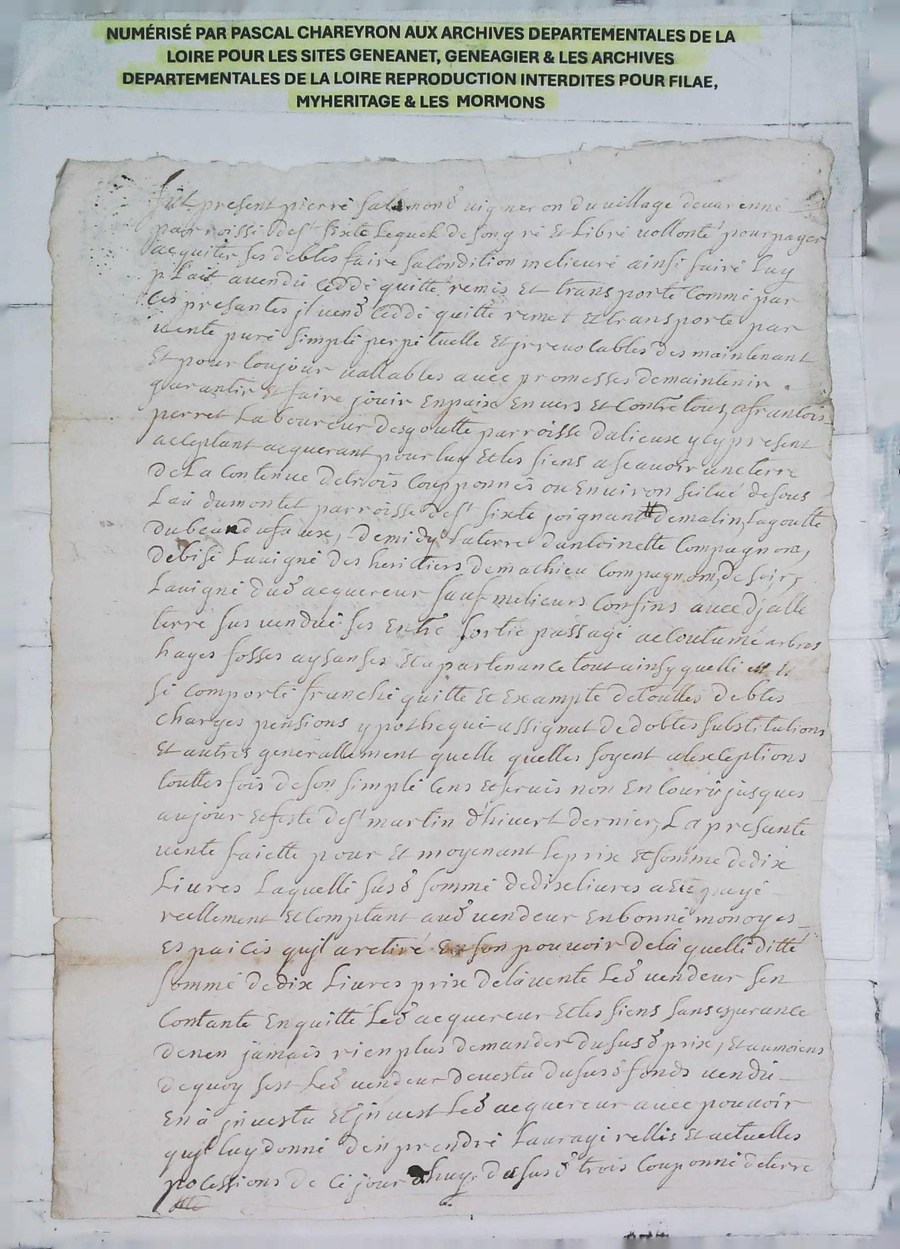 NUMÉRISÉ PAR PASCAL CHAREYRON AUX ARCHIVES DEPARTEMENTALES DE LA
LOIRE POUR LES SITES GENEANET, GENEAGIER & LES ARCHIVES
DEPARTEMENTALES DE LA LOIRE REPRODUCTION INTERDITES POUR FILAE,
MYHERITAGE & LES MORMONS
fut present pierre Salemond vigneron du village de varenne
parroisse de st sixte Lequel de son gré Et Libre vollonté pour payer
acquiter ses debtes faire sa Condition melieure ainsi faire Luy
plait a vendu ceddé quitte remis Et transporté Comme par
ces presantes jl vend Cedde quitte remet Et transporte par
vente pure simple perpetuelle Et jrrevocables des maintenant
Et pour toujour vallables avec promesses de maintenir
garantir Et faire jouir En paix Envers Et Contre tous, a francois
perret Laboureur desgoutte parroisse dalieux y cy present
acceptant acquerant pour luy Et les siens a scavoir une terre
de La Contenue de trois Coupponnes ou Environ scitué desous
Lau du montet parroisse de st sixte joignant de matin, La goutte
du de midy La terre dantoinette Compagnon,
de bise La vigne des heritiers de mathieu Compagnon, de soir,
La vigne dud acquereur sauf melieurs Confins avec djcelle
terre sus vendue ses Entré sortie passage acoutumé arbres
hayes fosses aysanses Et apartenance tout ainsy quelle Et
se comporte franche quitte Et Exampte de touttes debtes
charges pensions ypotheque assignat de dobles substitutions
Et autres generallement quelle quelles soyent a lexceptions
touttes fois de son simple Cens Et servis non En Couru jusques
au jour Et feste de st martin dhivert dernier, La presante
vente faiette pour Et moyenant Le prix Et somme de dix
Livres Laquelle susd somme de dix livres a Eté payé
reellement Et Comptant aud vendeur En bonne monoyes
Espaices qujl a retiré En son pouvoir de la quelle ditte
somme de dix Livres prix de la vente Led vendeur sen
Contante En quitte Led acquereur Et les siens sans esperance
de nen jamais rien plus demander du susd prix, Et au moiens
de quoy sest Led vendeur devestu du susd fonds vendu
En a jnvestu Et jnvest Led acquereur avec pouvoir
qujl luy donne den prendre Et actuelles
possessions de ce jour dhuy, du susd trois Couponne de terre